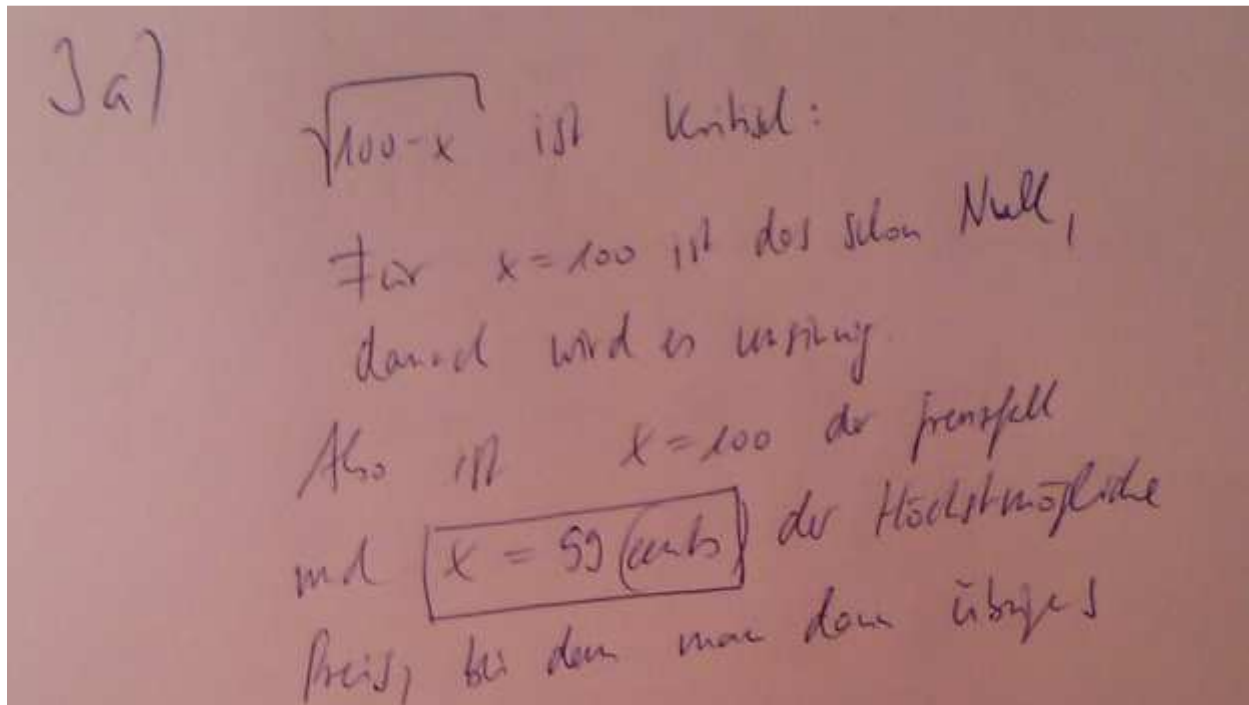 3a)
√100-x ist kritisch:
Für x=100 ist das schon Null,
danach wird es unsinnig.
Also ist x=100 der Grenzfall
und x = 99 (cents) der Höchstmögliche
Preis, bei dem man dann übrigens